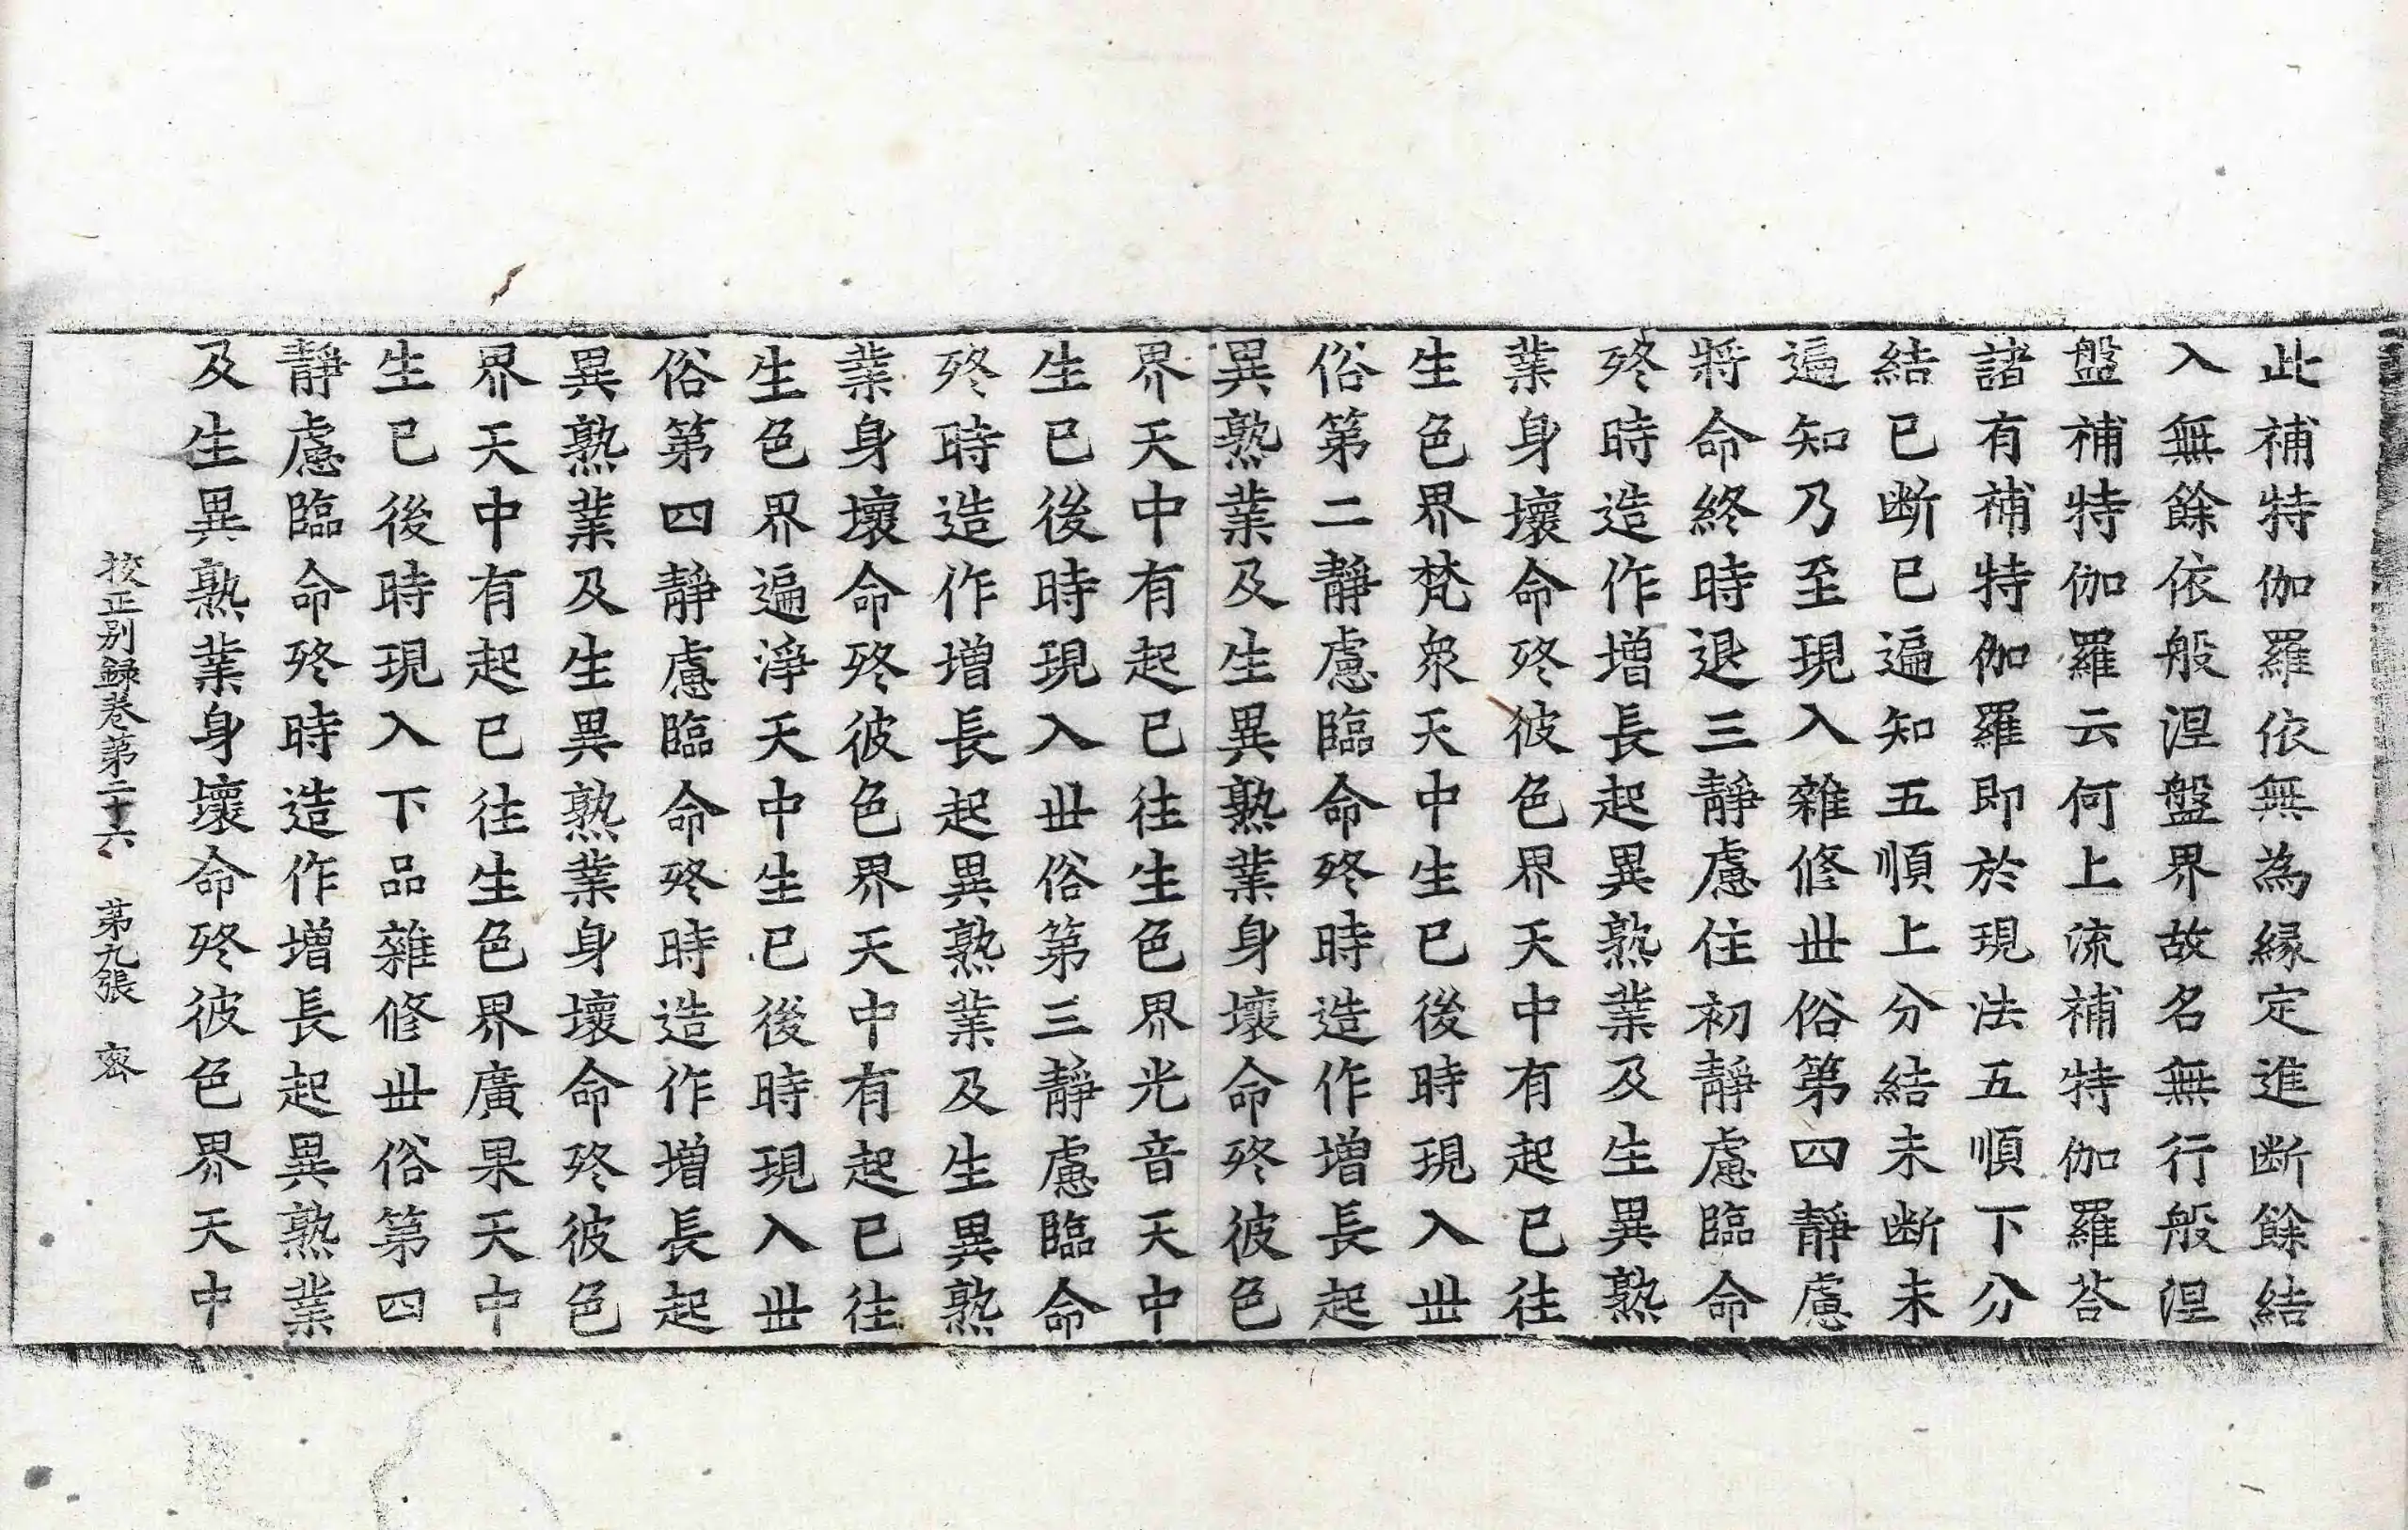 此補特伽羅依無為縁定進断餘結
入無餘依般涅盤界故名無行般涅
盤補特伽羅云何上流補特伽羅荅
諸有補特伽羅即於現法五順下分
結已断已遍知五順上分結未断未
遍知乃至現入雜修丗俗第四靜慮
將命終時退三靜慮住初靜慮臨命
歿時造作增長起異熟業及生異熟
業身壞命歿彼色界天中有起已往
生色界梵衆天中生已後時現入丗
俗第二靜慮臨命歿時造作增長起
異熟業及生異熟業身壞命歿彼色
界天中有起已往生色界光音天中
生已後時現入丗俗第三靜慮臨命
歿時造作增長起異熟業及生異熟
業身壞命歿彼色界天中有起已往
生色界遍淨天中生已後時現入丗
俗第四靜慮臨命歿時造作增長起
異熟業及生異熟業身壞命歿彼色
界天中有起已往生色界廣果天中
生已後時現入下品雜修丗俗第四
靜慮臨命歿時造作增長起異熟業
及生異熟業身壞命歿彼色界天中
挍正别録卷第二十六 第九張 密